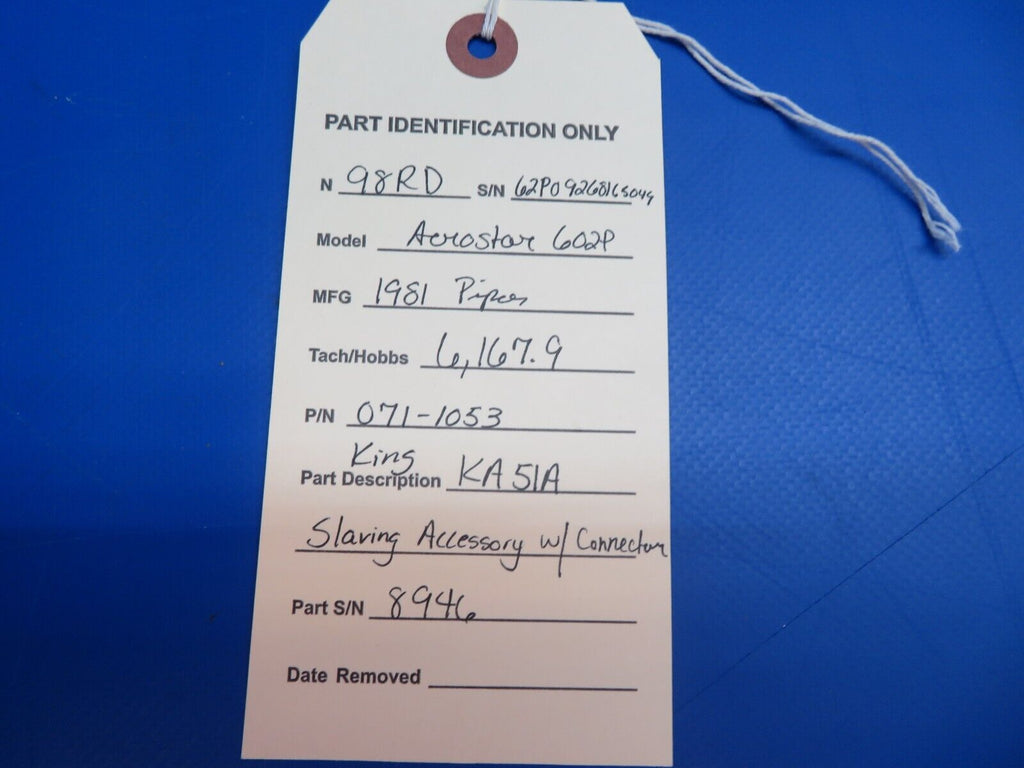 PART IDENTIFICATION ONLY
N 98RD S/N 62P09268165049
Model Aerostar 602P
MFG 1981 Piper
Tach/Hobbs 6,167.9
P/N 071-1053
King
Part Description KA51A
Slaving Accessory w/ Connector
Part S/N 8946
Date Removed